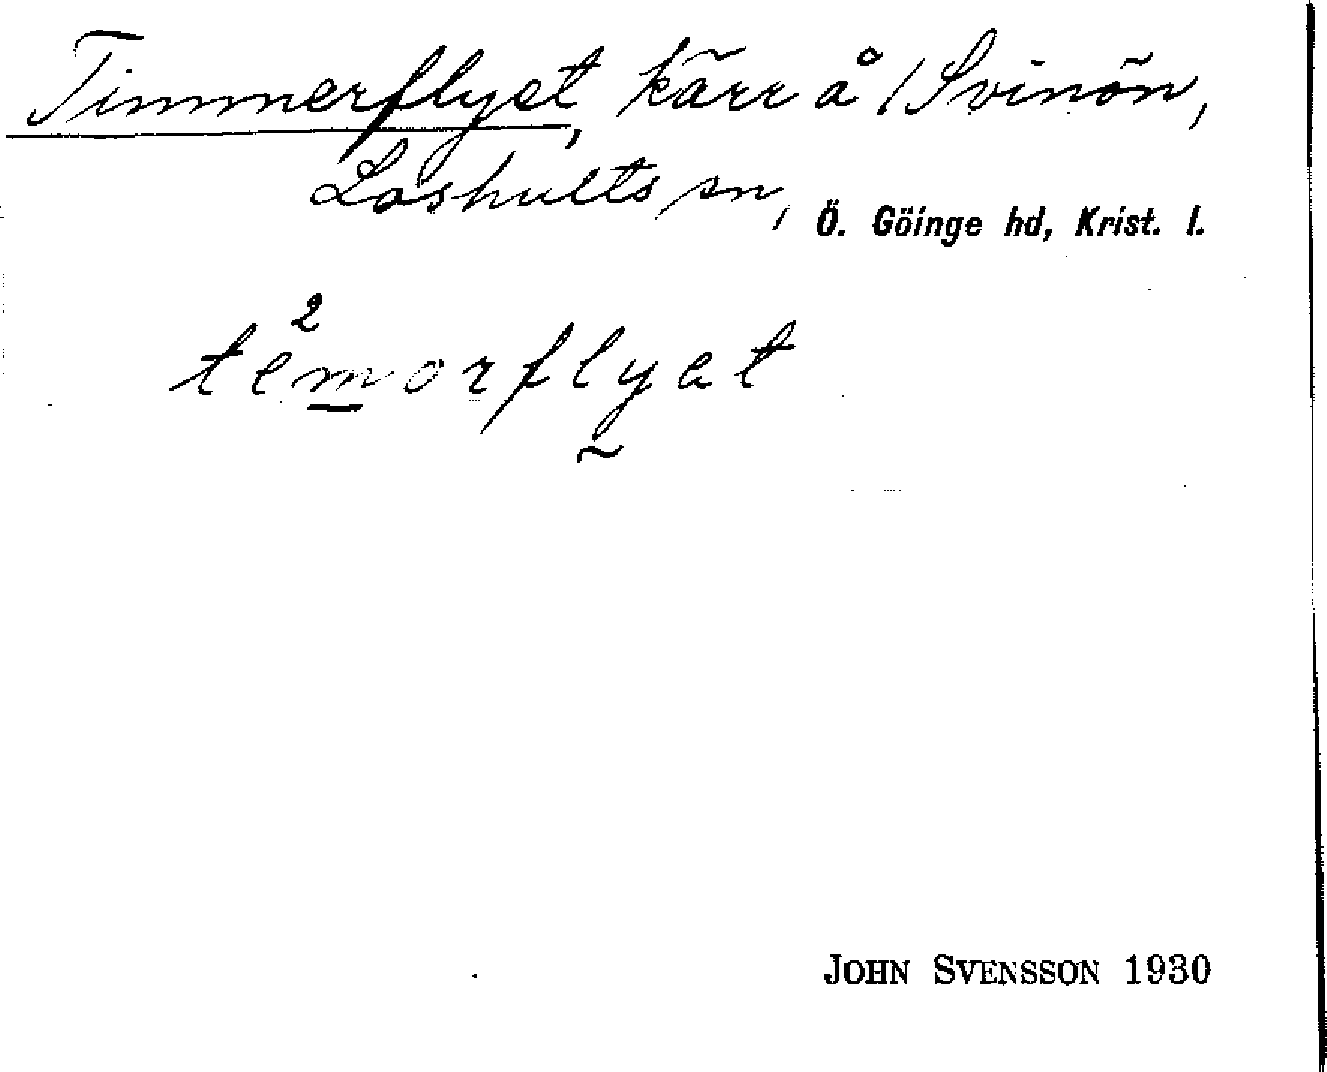 Timmerflyet, kärr å /Svinön,
Loshults sn, Ö. Göinge hd, Krist. l.
2
temorflyet
JOHN SVENSSON 1930